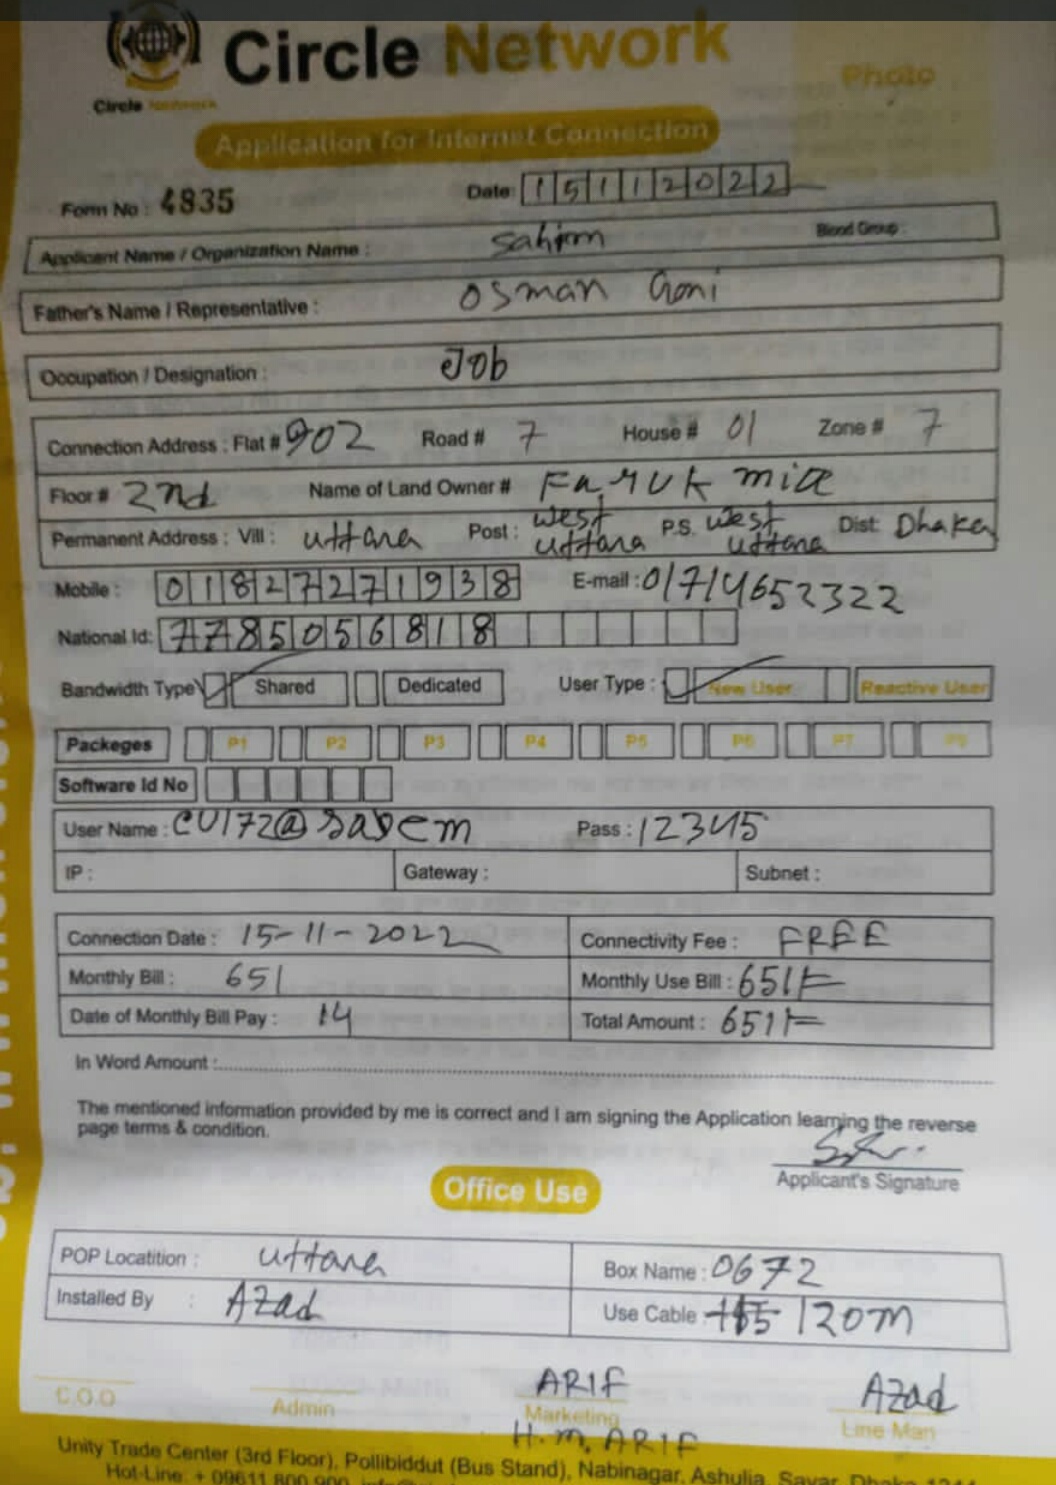 Circle Network
Circle Network
Photo
Application for Internet Connection
Form No : 4835 Date: 15112022
Applicant Name / Organization Name : Blood Group :
Father's Name / Representative : Osman Goni
Occupation / Designation : Job
Connection Address : Flat # 902 Road # 7 House # 01 Zone # 7
Floor # 2nd Name of Land Owner # Faruk mia
Permanent Address : Vill : uttara Post : west uttara P.S. west uttara Dist: Dhaka
Mobile : 01827271938 E-mail : 01714652322
National Id: 7785056818
Bandwidth Type Shared Dedicated User Type : New User Reactive User
Packeges P1 P2 P3 P4 P5 P6 P7 P8
Software Id No
User Name : Pass : 12345
IP : Gateway : Subnet :
Connection Date : 15-11-2022 Connectivity Fee : FREE
Monthly Bill : 651 Monthly Use Bill : 651/=
Date of Monthly Bill Pay : 14 Total Amount : 651/=
In Word Amount :
The mentioned information provided by me is correct and I am signing the Application learning the reverse
page terms & condition.
Applicant's Signature
Office Use
POP Locatition : uttara Box Name : 0672
Installed By : Azad Use Cable 120m
ARIF Azad
C.O.O Admin Marketing Line Man
H.m. ARIF
Unity Trade Center (3rd Floor), Pollibiddut (Bus Stand), Nabinagar, Ashulia, Savar, Dhaka-1344
Hot-Line: + 09611 800 900,